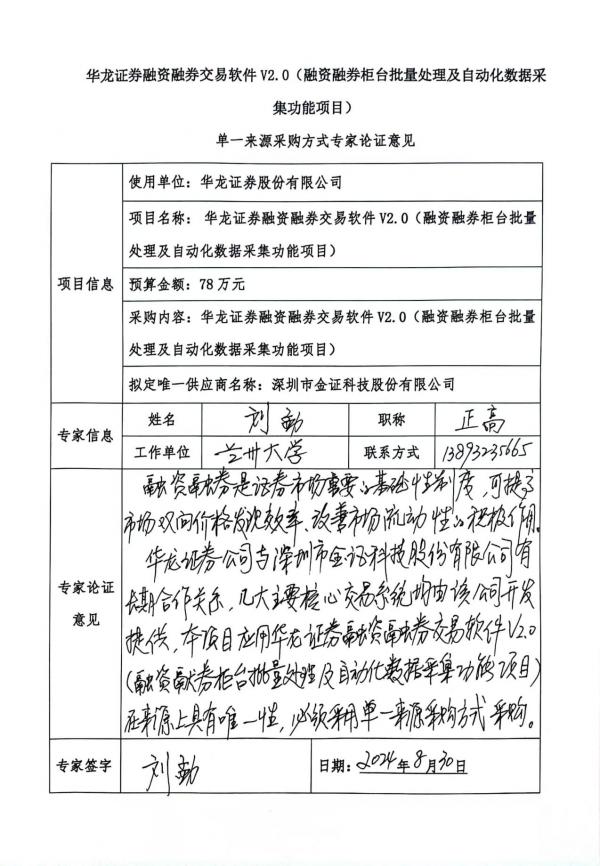 华龙证券融资融券交易软件 V2.0（融资融券柜台批量处理及自动化数据采
集功能项目）
单一来源采购方式专家论证意见
项目信息
使用单位：华龙证券股份有限公司
项目名称： 华龙证券融资融券交易软件 V2.0（融资融券柜台批量
处理及自动化数据采集功能项目）
预算金额：78 万元
采购内容：华龙证券融资融券交易软件 V2.0（融资融券柜台批量
处理及自动化数据采集功能项目）
拟定唯一供应商名称：深圳市金证科技股份有限公司
专家信息
姓名 刘勤 职称 正高
工作单位 兰州大学 联系方式 13893235665
专家论证
意见
融资融券是证券市场重要的基础性制度，可提高
市场双向价格发现效率、改善市场流动性的积极作用。
华龙证券公司与深圳市金证科技股份有限公司有
长期合作关系，几大主要核心交易系统均由该公司开发
提供，本项目应用华龙证券融资融券交易软件V2.0
（融资融券柜台批量处理及自动化数据采集功能项目）
在来源上具有唯一性，必须采用单一来源采购方式采购。
专家签字 刘勤 日期：2024年8月30日